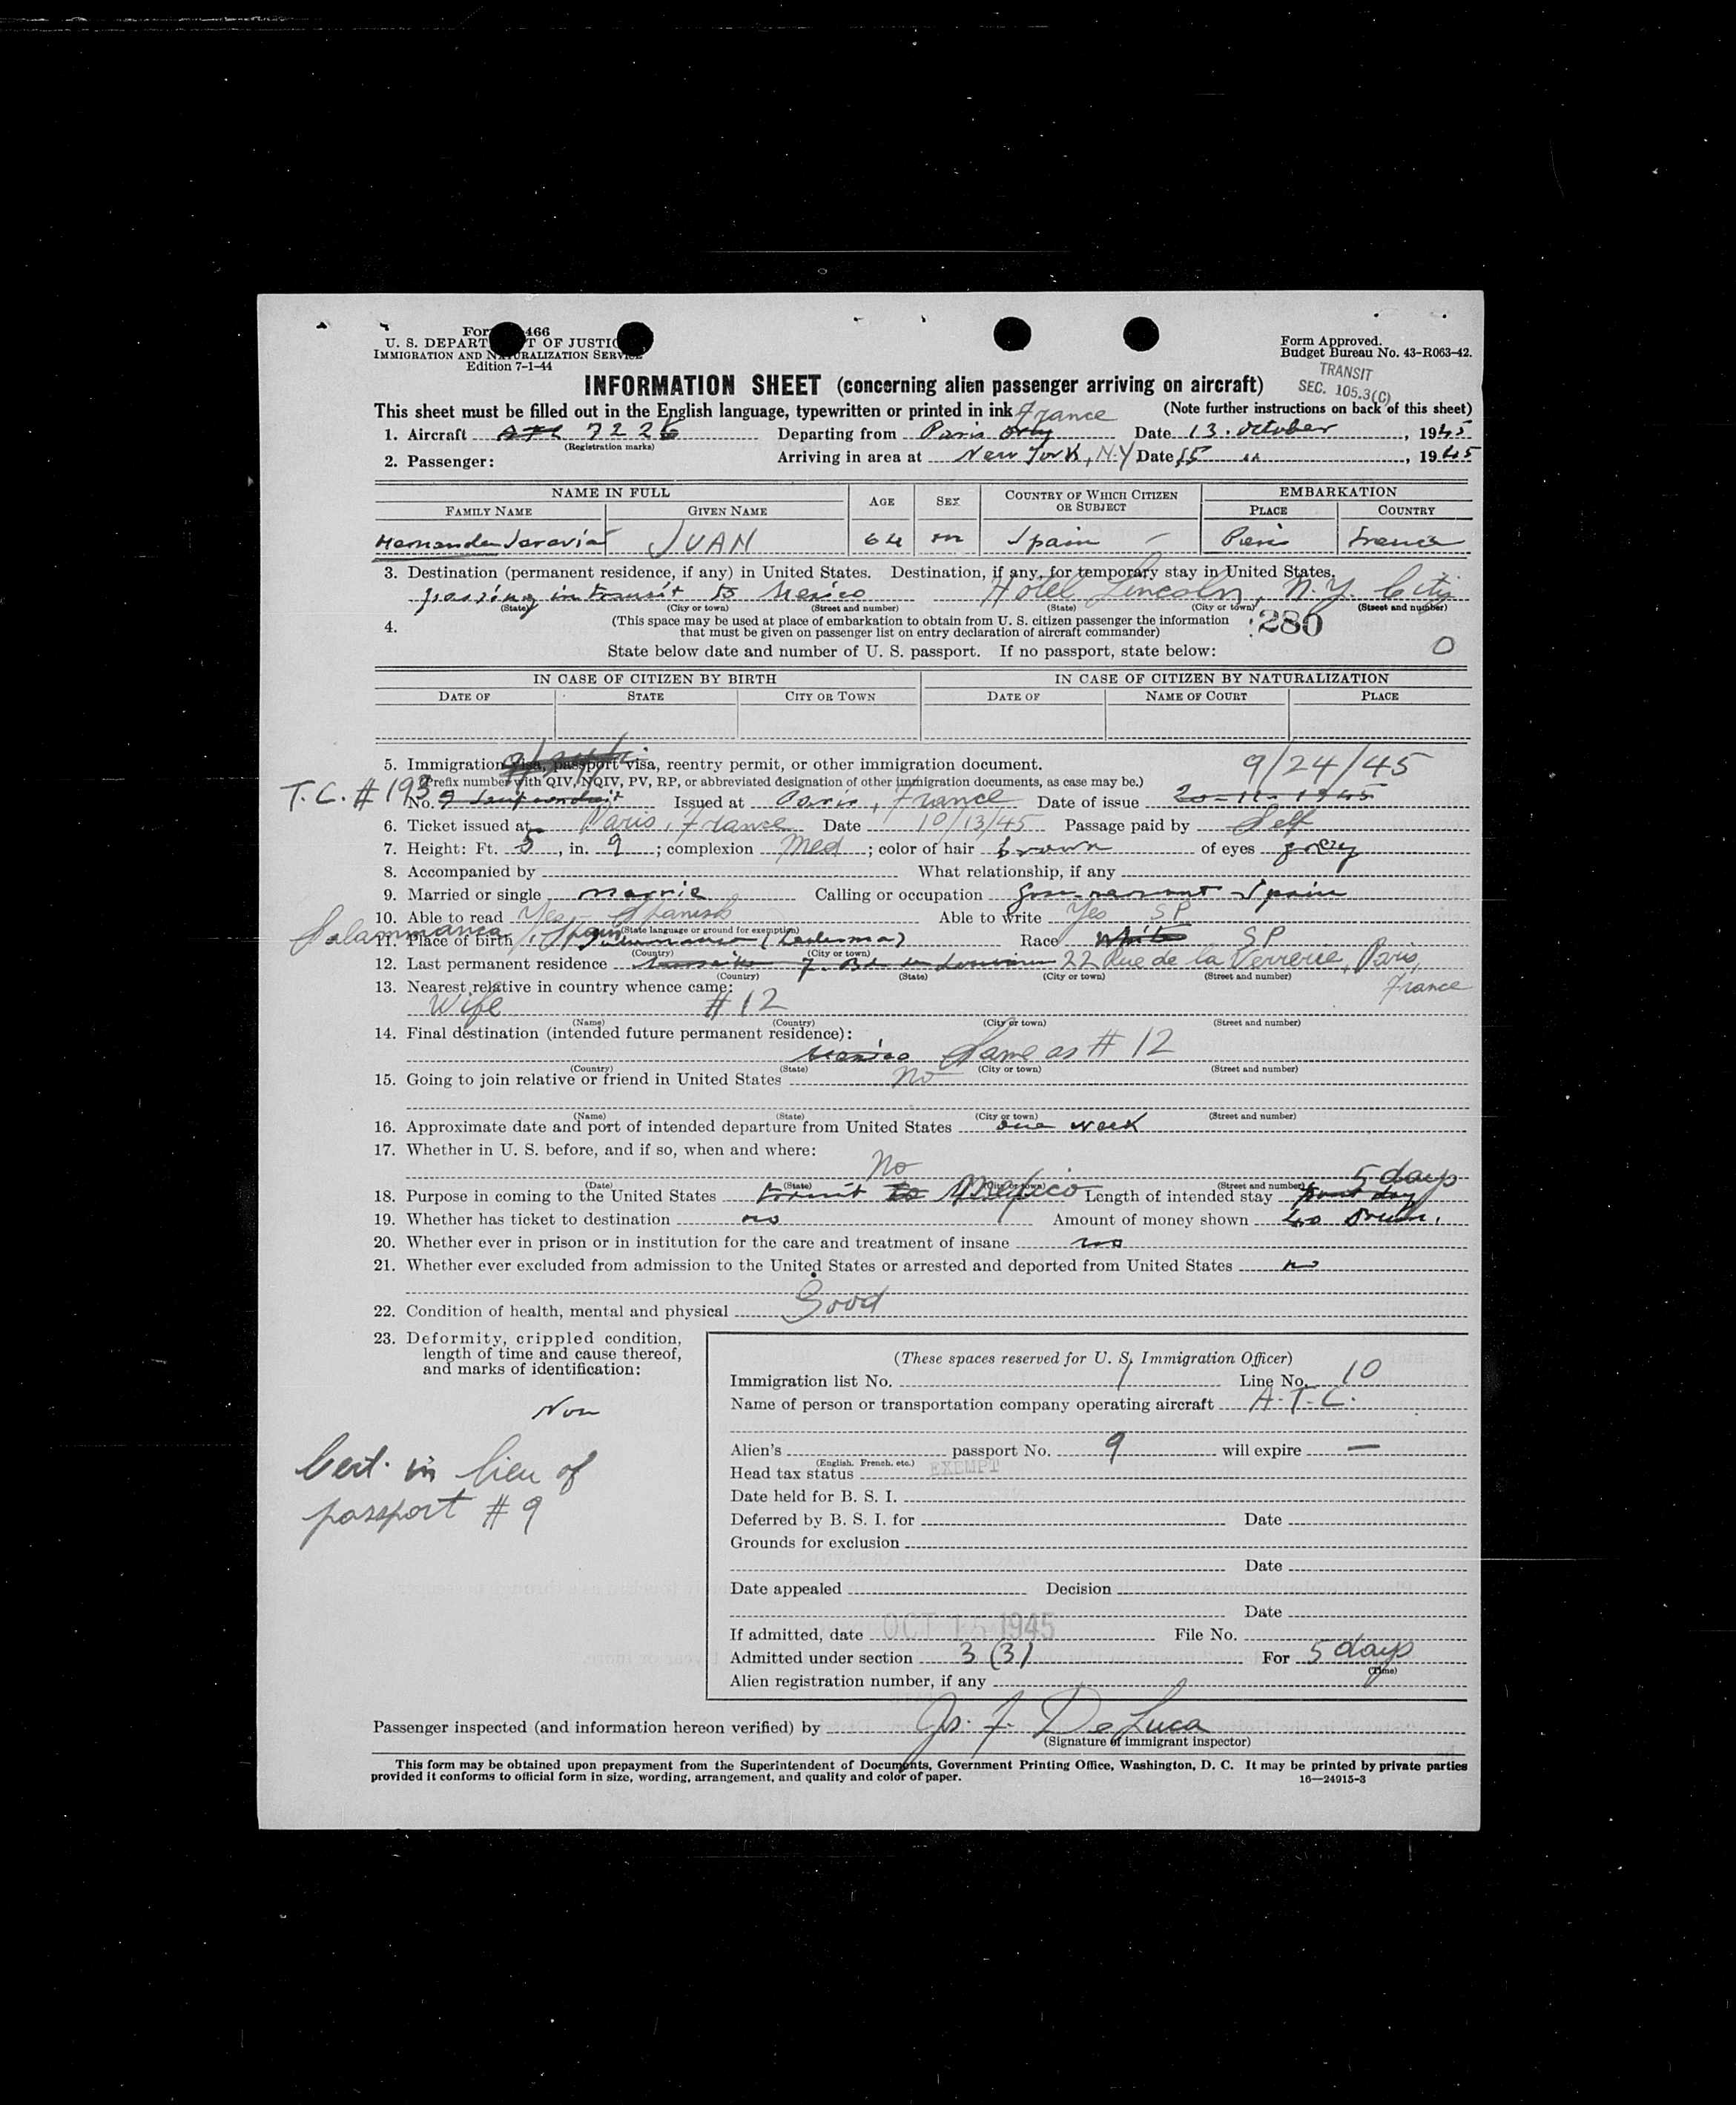 Form 466
U. S. DEPARTMENT OF JUSTICE
IMMIGRATION AND NATURALIZATION SERVICE
Edition 7-1-44
Form Approved.
Budget Bureau No. 43-R063-42.
TRANSIT
SEC. 105.3(C)
INFORMATION SHEET (concerning alien passenger arriving on aircraft)
This sheet must be filled out in the English language, typewritten or printed in ink France (Note further instructions on back of this sheet)
1. Aircraft 7226 Departing from Paris Orly Date 13 october, 1945
(Registration marks)
2. Passenger: Arriving in area at New York, N.Y Date 15 " , 1945
NAME IN FULL AGE SEX COUNTRY OF WHICH CITIZEN OR SUBJECT EMBARKATION
FAMILY NAME GIVEN NAME PLACE COUNTRY
Hernandez Saravia JUAN 64 m Spain – Paris France
3. Destination (permanent residence, if any) in United States. Destination, if any, for temporary stay in United States.
passing in transit to Mexico Hotel Lincoln, N.Y. City
(State) (City or town) (Street and number) (State) (City or town) (Street and number)
4. (This space may be used at place of embarkation to obtain from U. S. citizen passenger the information
that must be given on passenger list on entry declaration of aircraft commander)
280
State below date and number of U. S. passport. If no passport, state below: 0
IN CASE OF CITIZEN BY BIRTH IN CASE OF CITIZEN BY NATURALIZATION
DATE OF STATE CITY OR TOWN DATE OF NAME OF COURT PLACE
5. Immigration visa, passport visa, reentry permit, or other immigration document. 9/24/45
(Prefix number with QIV, NQIV, PV, RP, or abbreviated designation of other immigration documents, as case may be.)
T.C. # 193 No. 9 Issued at Paris, France Date of issue 20-11-1945
6. Ticket issued at Paris, France Date 10/13/45 Passage paid by Self
7. Height: Ft. 5, in. 9; complexion Med; color of hair brown of eyes grey
8. Accompanied by What relationship, if any
9. Married or single marrie Calling or occupation Spain
10. Able to read Yes – Spanish Able to write Yes SP
(State language or ground for exemption)
Salamanca, Spain
11. Place of birth (Ledesma) Race White SP
(Country) (City or town)
12. Last permanent residence 22 Rue de la Verrerie, Paris, France
(Country) (State) (City or town) (Street and number)
13. Nearest relative in country whence came:
Wife # 12
(Name) (Country) (City or town) (Street and number)
14. Final destination (intended future permanent residence):
Mexico Same as # 12
(Country) (State) (City or town) (Street and number)
15. Going to join relative or friend in United States No
(Name) (State) (City or town) (Street and number)
16. Approximate date and port of intended departure from United States one week
17. Whether in U. S. before, and if so, when and where:
No
(Date) (State) (City or town) (Street and number)
18. Purpose in coming to the United States transit to Mexico Length of intended stay 5 days
19. Whether has ticket to destination no Amount of money shown
20. Whether ever in prison or in institution for the care and treatment of insane no
21. Whether ever excluded from admission to the United States or arrested and deported from United States no
22. Condition of health, mental and physical Good
23. Deformity, crippled condition,
length of time and cause thereof,
and marks of identification:
Non
Cert. in lieu of
passport # 9
(These spaces reserved for U. S. Immigration Officer)
Immigration list No. 1 Line No. 10
Name of person or transportation company operating aircraft A.T.C.
Alien's passport No. 9 will expire —
(English, French, etc.)
Head tax status EXEMPT
Date held for B. S. I.
Deferred by B. S. I. for Date
Grounds for exclusion
Date
Date appealed Decision
Date
If admitted, date OCT 15 1945 File No.
Admitted under section 3 (3) For 5 days
(Time)
Alien registration number, if any
Passenger inspected (and information hereon verified) by Js. F. De Luca
(Signature of immigrant inspector)
This form may be obtained upon prepayment from the Superintendent of Documents, Government Printing Office, Washington, D. C. It may be printed by private parties
provided it conforms to official form in size, wording, arrangement, and quality and color of paper. 16—24915-3